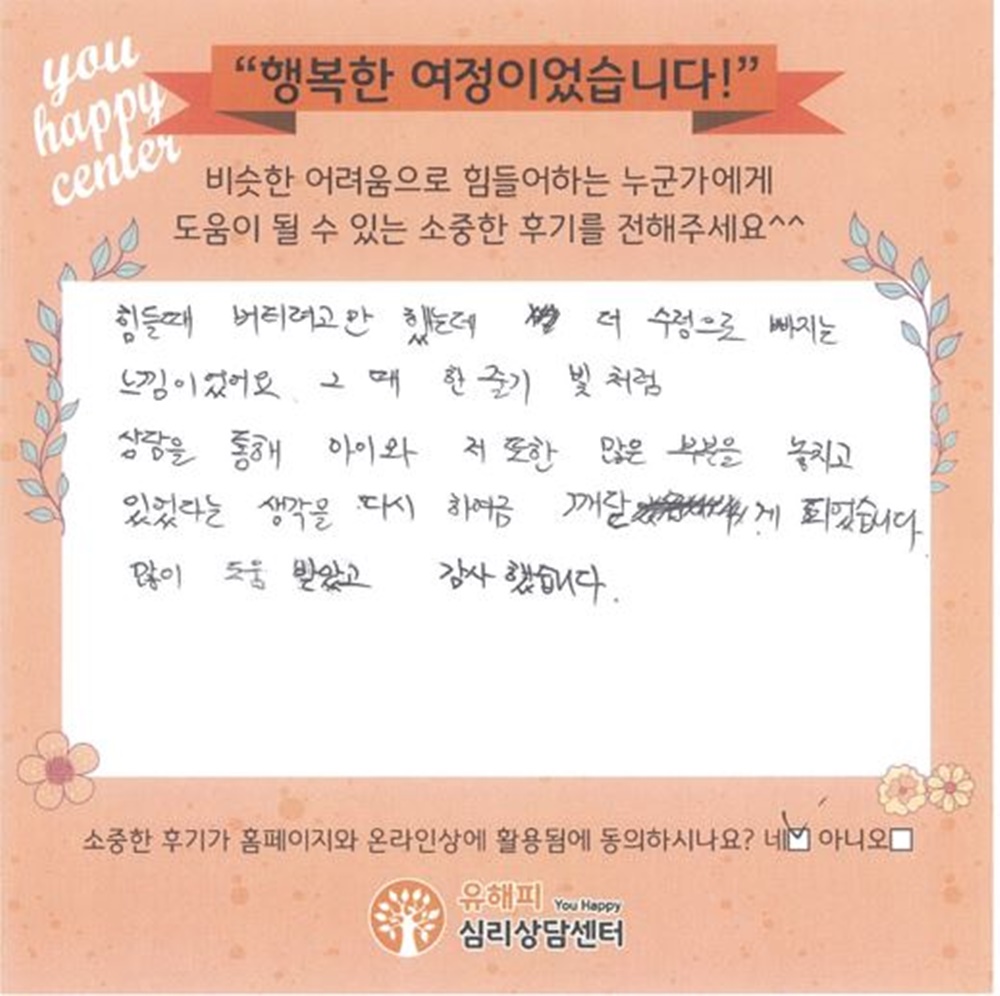 you
happy
center
“행복한 여정이었습니다!”
비슷한 어려움으로 힘들어하는 누군가에게
도움이 될 수 있는 소중한 후기를 전해주세요^^
힘들때 버티려고만 했는데 더 수렁으로 빠지는
느낌이었어요 그 때 한 줄기 빛 처럼
상담을 통해 아이와 저 또한 많은 부분을 놓치고
있었다는 생각을 다시 하여금 깨달 게 되었습니다
많이 도움 받았고 감사 했습니다.
소중한 후기가 홈페이지와 온라인상에 활용됨에 동의하시나요? 네 아니오
유해피 You Happy
심리상담센터